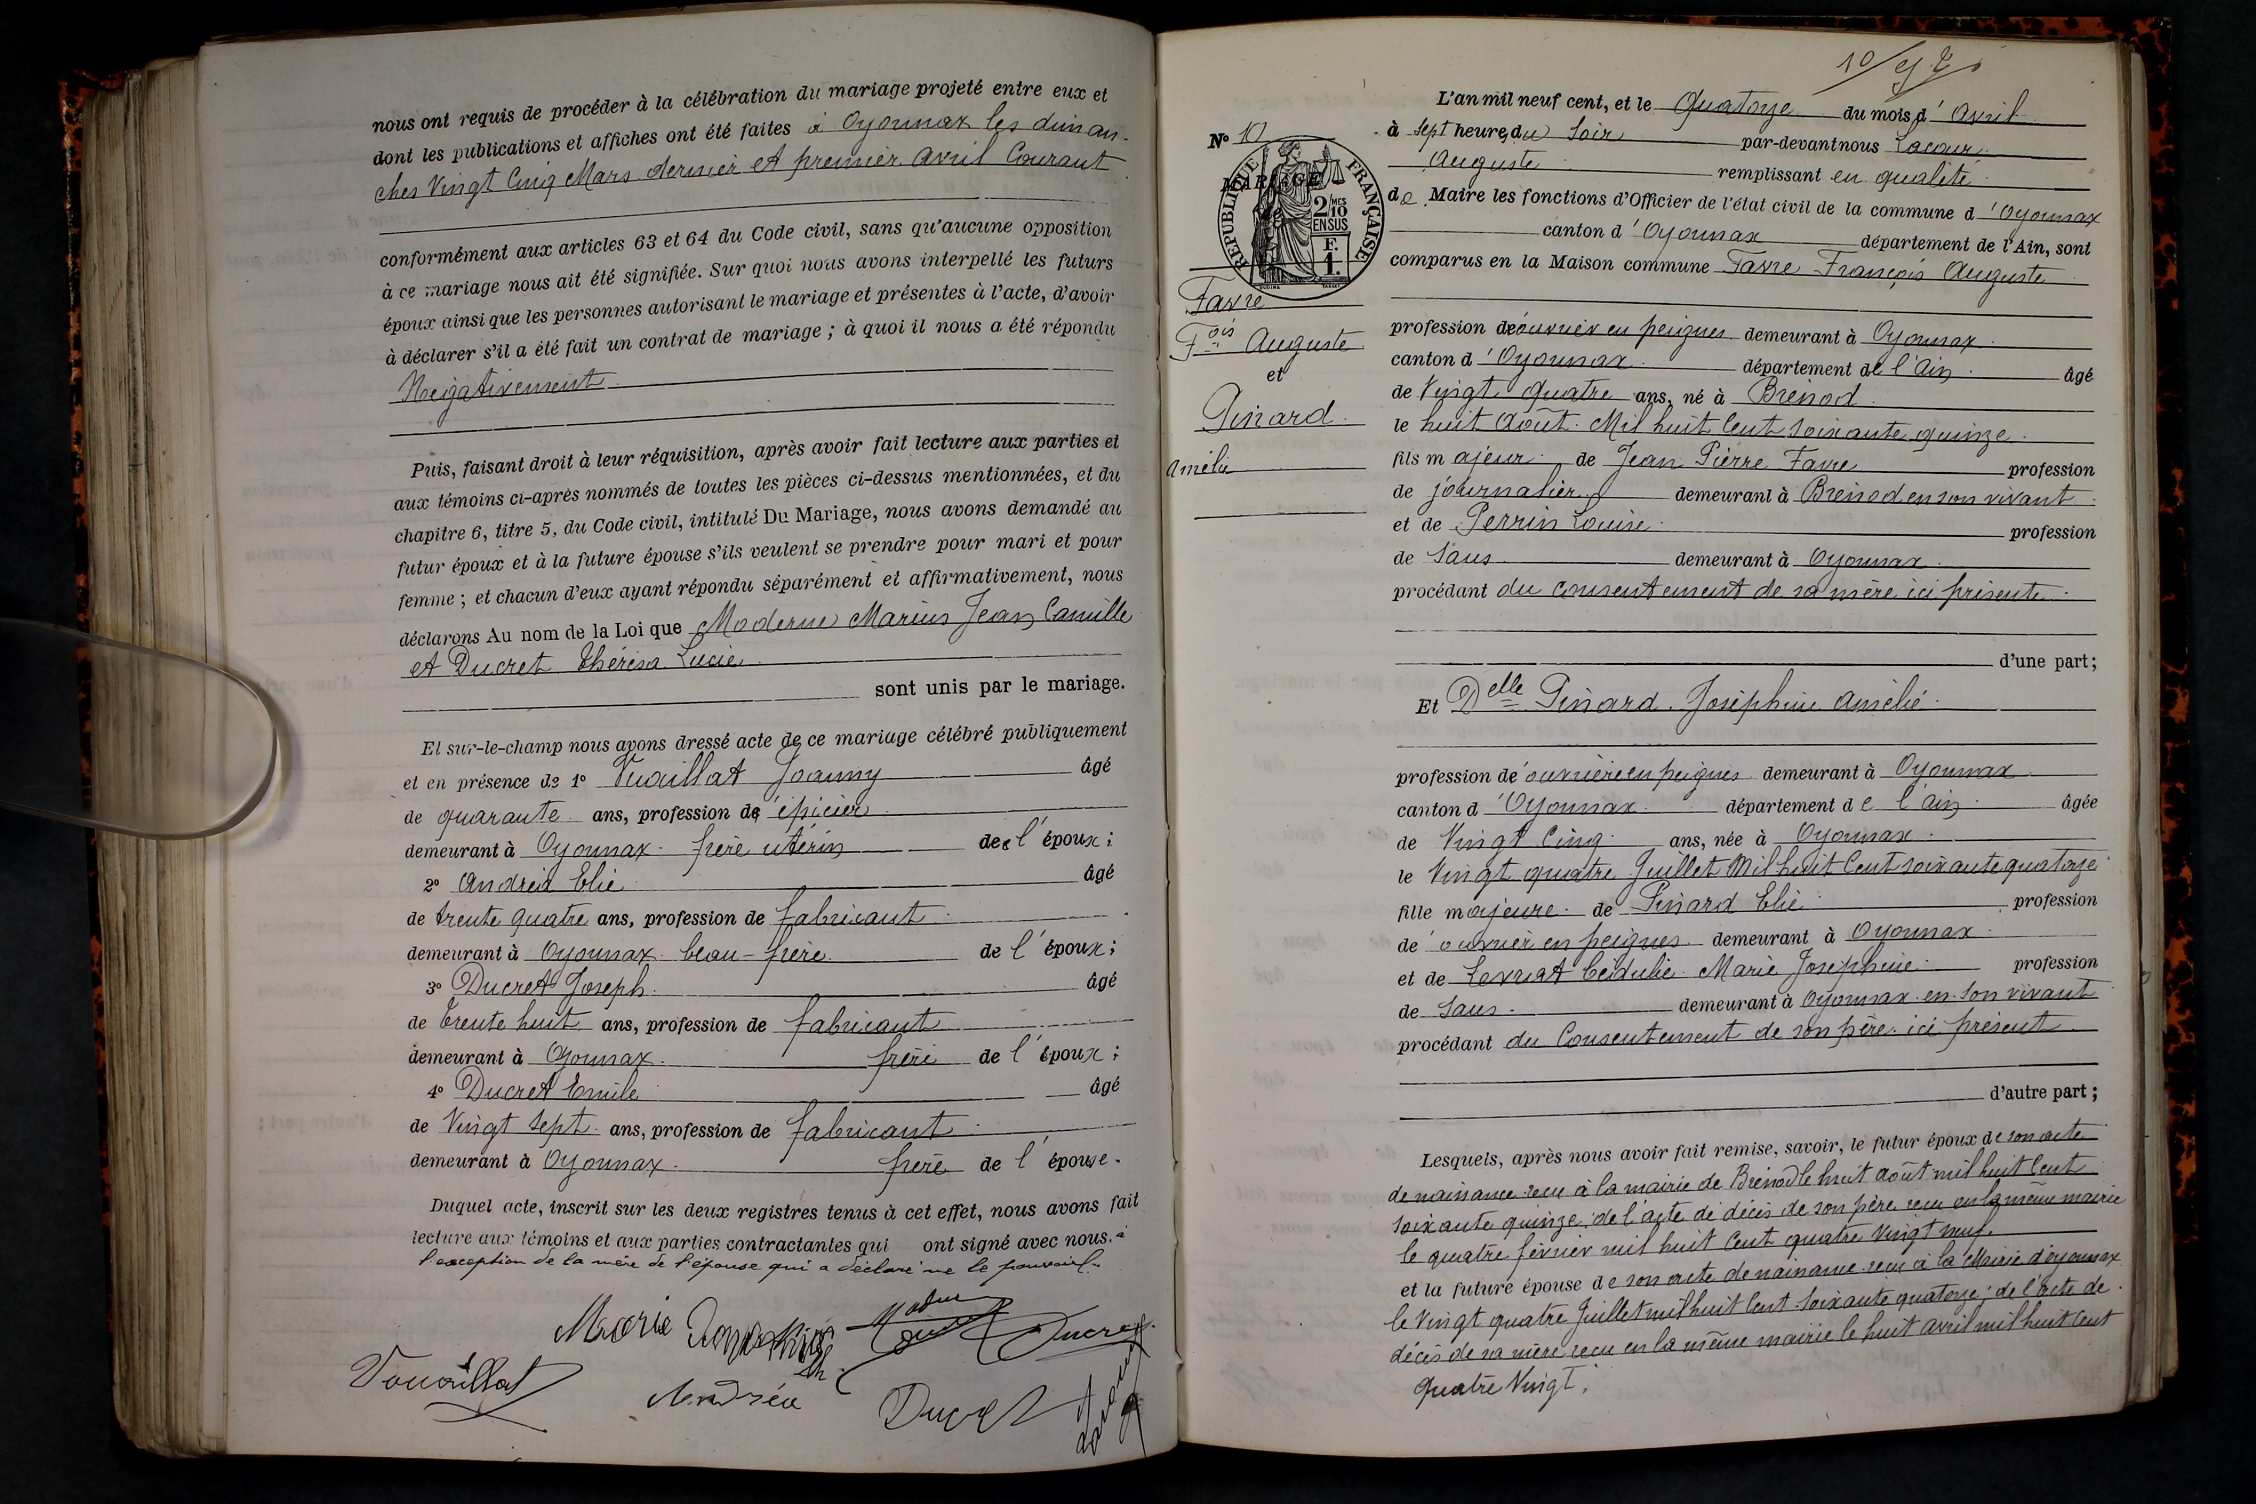 nous ont requis de procéder à la célébration du mariage projeté entre eux et
dont les publications et affiches ont été faites à Oyonnax les diman-
ches Vingt Cinq Mars dernier et premier avril Courant
conformément aux articles 63 et 64 du Code civil, sans qu'aucune opposition
à ce mariage nous ait été signifiée. Sur quoi nous avons interpellé les futurs
époux ainsi que les personnes autorisant le mariage et présentes à l'acte, d'avoir
à déclarer s'il a été fait un contrat de mariage ; à quoi il nous a été répondu
Négativement
Puis, faisant droit à leur réquisition, après avoir fait lecture aux parties et
aux témoins ci-après nommés de toutes les pièces ci-dessus mentionnées, et du
chapitre 6, titre 5, du Code civil, intitulé Du Mariage, nous avons demandé au
futur époux et à la future épouse s'ils veulent se prendre pour mari et pour
femme ; et chacun d'eux ayant répondu séparément et affirmativement, nous
déclarons Au nom de la Loi que Moderne Marius Jean Camille
et Ducret Thérésa Lucie
sont unis par le mariage.
Et sur-le-champ nous avons dressé acte de ce mariage célébré publiquement
et en présence de 1° Vuaillat Joanny âgé
de quarante ans, profession de épicier
demeurant à Oyonnax frère utérin de l'époux ;
2° Andréa Elie âgé
de trente quatre ans, profession de fabricant
demeurant à Oyonnax beau-frère de l'époux ;
3° Ducret Joseph âgé
de trente huit ans, profession de fabricant
demeurant à Oyonnax frère de l'époux ;
4° Ducret Emile âgé
de Vingt sept ans, profession de fabricant
demeurant à Oyonnax frère de l'épouse.
Duquel acte, inscrit sur les deux registres tenus à cet effet, nous avons fait
lecture aux témoins et aux parties contractantes qui ont signé avec nous. à
l'exception de la mère de l'épouse qui a déclaré ne le pouvoir
Marie Ducret
Vouaillat Andréa Ducret
10
L'an mil neuf cent, et le Quatorze du mois d'avril
N° 10
à sept heures du soir par-devant nous Lacour
Auguste remplissant en qualité
de Maire les fonctions d'Officier de l'état civil de la commune d'Oyonnax
canton d'Oyonnax département de l'Ain, sont
comparus en la Maison commune Favre François Auguste
MARIAGE
de
RÉPUBLIQUE FRANÇAISE
2/10 MES
EN SUS
F.
1.
Favre
Fois Auguste
et
Pinard
Amélie
profession de ouvrier en peignes demeurant à Oyonnax
canton d'Oyonnax département de l'Ain âgé
de Vingt quatre ans, né à Brénod
le huit août Mil huit Cent soixante quinze
fils majeur de Jean Pierre Favre profession
de journalier demeurant à Brénod en son vivant
et de Perrin Louise profession
de Sans demeurant à Oyonnax
procédant du consentement de sa mère ici présente
d'une part ;
Et Delle Pinard Joséphine Amélie
profession de ouvrière en peignes demeurant à Oyonnax
canton d'Oyonnax département de l'Ain âgée
de Vingt Cinq ans, née à Oyonnax
le Vingt quatre Juillet Mil huit Cent soixante quatorze
fille majeure de Pinard Elie profession
de ouvrier en peignes demeurant à Oyonnax
et de Levrat Cédulie Marie Josephine profession
de Sans demeurant à Oyonnax en son vivant
procédant du Consentement de son père ici présent
d'autre part ;
Lesquels, après nous avoir fait remise, savoir, le futur époux de son acte
de naissance reçu à la mairie de Brénod le huit août mil huit Cent
soixante quinze ; de l'acte de décès de son père reçu en la même mairie
le quatre février mil huit Cent quatre Vingt neuf.
et la future épouse de son acte de naissance reçu à la Mairie d'oyonnax
le Vingt quatre Juillet mil huit Cent soixante quatorze ; de l'acte de
décès de sa mère reçu en la même mairie le huit avril mil huit Cent
quatre Vingt ;